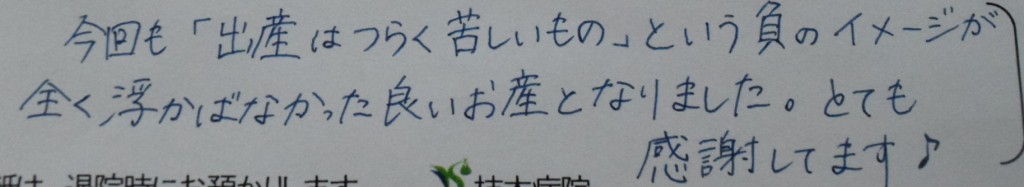 今回も「出産はつらく苦しいもの」という負のイメージが
全く浮かばなかった良いお産となりました。とても
感謝してます♪
退院時にお預かりします